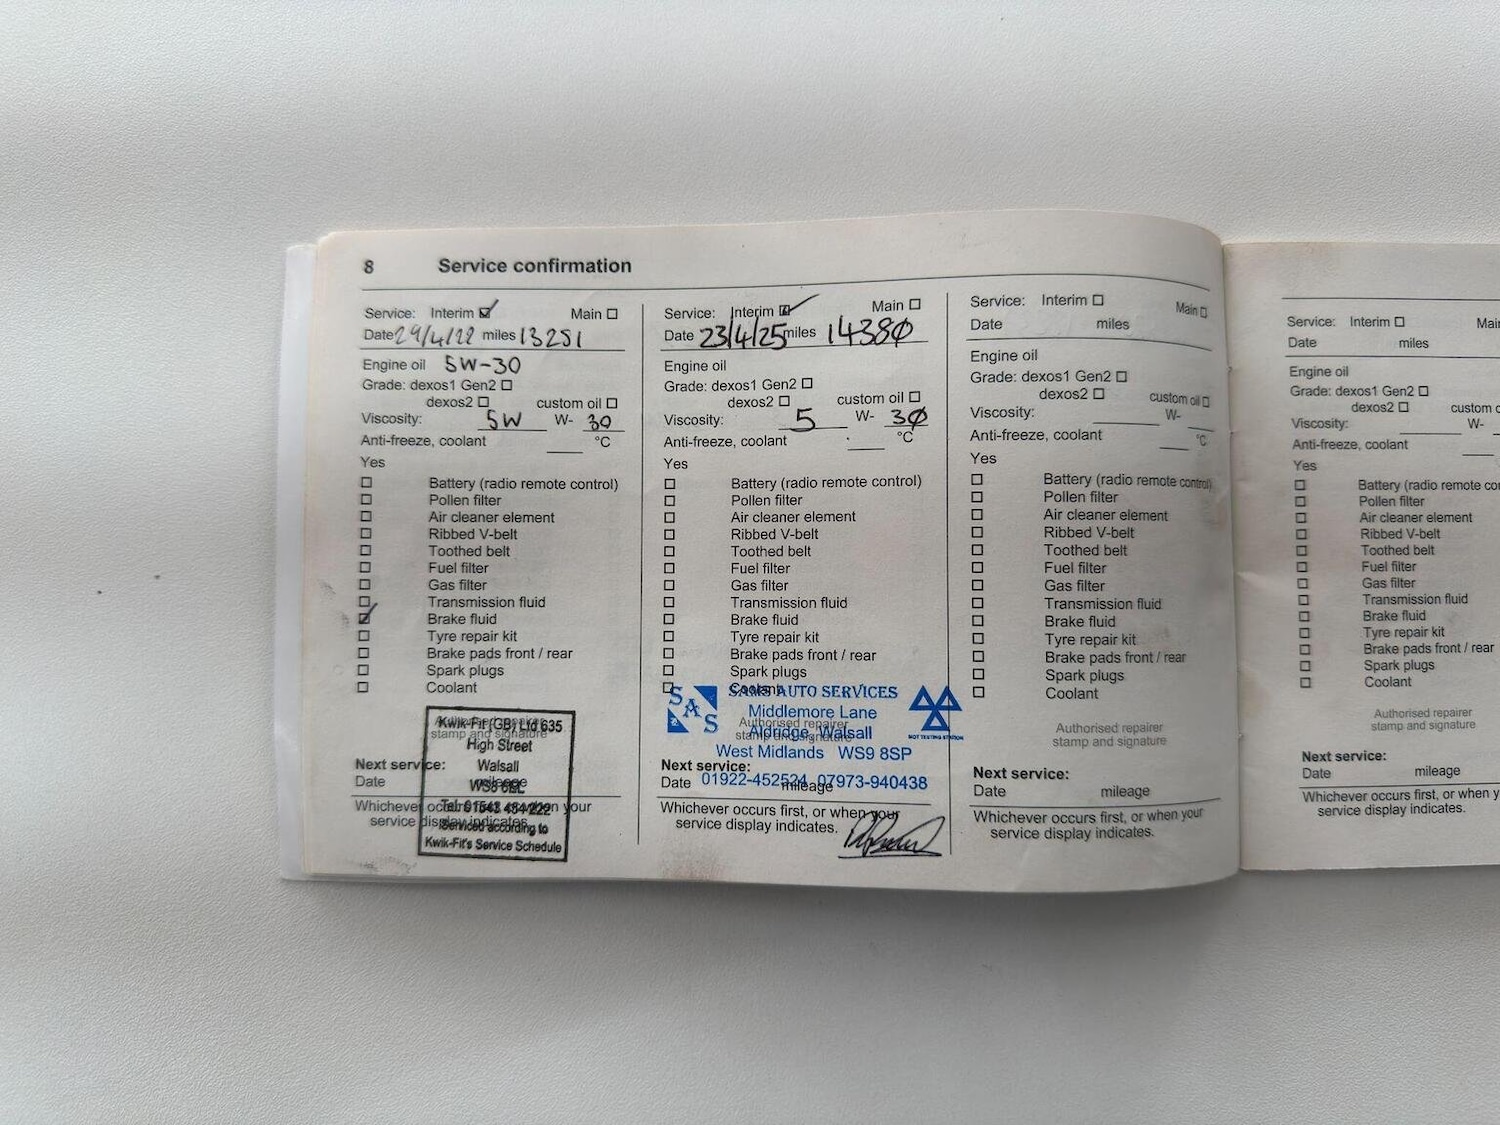 8 Service confirmation
Service: Interim Main
Date 29/4/22 miles 13251
Engine oil 5W-30
Grade: dexos1 Gen2
dexos2 custom oil
Viscosity: 5W W- 30
Anti-freeze, coolant °C
Yes
Battery (radio remote control)
Pollen filter
Air cleaner element
Ribbed V-belt
Toothed belt
Fuel filter
Gas filter
Transmission fluid
Brake fluid
Tyre repair kit
Brake pads front / rear
Spark plugs
Coolant
Authorised repairer
stamp and signature
Kwik-Fit (GB) Ltd 635
High Street
Walsall
Tel: 01543 484222
Serviced according to
Kwik-Fit's Service Schedule
Next service:
Date mileage
Whichever occurs first, or when your
service display indicates.
Service: Interim Main
Date 23/4/25 miles 14380
Engine oil
Grade: dexos1 Gen2
dexos2 custom oil
Viscosity: 5 W- 30
Anti-freeze, coolant °C
Yes
Battery (radio remote control)
Pollen filter
Air cleaner element
Ribbed V-belt
Toothed belt
Fuel filter
Gas filter
Transmission fluid
Brake fluid
Tyre repair kit
Brake pads front / rear
Spark plugs
Coolant
SAS
SAMS AUTO SERVICES
Middlemore Lane
Aldridge, Walsall
West Midlands WS9 8SP
01922-452524, 07973-940438
MOT TESTING STATION
Authorised repairer
stamp and signature
Next service:
Date mileage
Whichever occurs first, or when your
service display indicates.
Service: Interim Main
Date miles
Engine oil
Grade: dexos1 Gen2
dexos2 custom oil
Viscosity: W-
Anti-freeze, coolant °C
Yes
Battery (radio remote control)
Pollen filter
Air cleaner element
Ribbed V-belt
Toothed belt
Fuel filter
Gas filter
Transmission fluid
Brake fluid
Tyre repair kit
Brake pads front / rear
Spark plugs
Coolant
Authorised repairer
stamp and signature
Next service:
Date mileage
Whichever occurs first, or when your
service display indicates.
Service: Interim Mai
Date miles
Engine oil
Grade: dexos1 Gen2
dexos2 custom
Viscosity: W-
Anti-freeze, coolant
Yes
Battery (radio remote co
Pollen filter
Air cleaner element
Ribbed V-belt
Toothed belt
Fuel filter
Gas filter
Transmission fluid
Brake fluid
Tyre repair kit
Brake pads front / rear
Spark plugs
Coolant
Authorised repairer
stamp and signature
Next service:
Date mileage
Whichever occurs first, or when y
service display indicates.